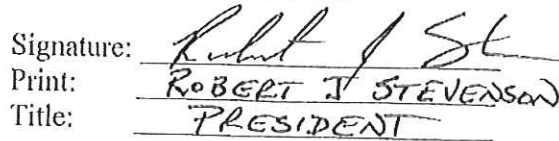 Signature: Robert J St
Print: ROBERT J STEVENSON
Title: PRESIDENT